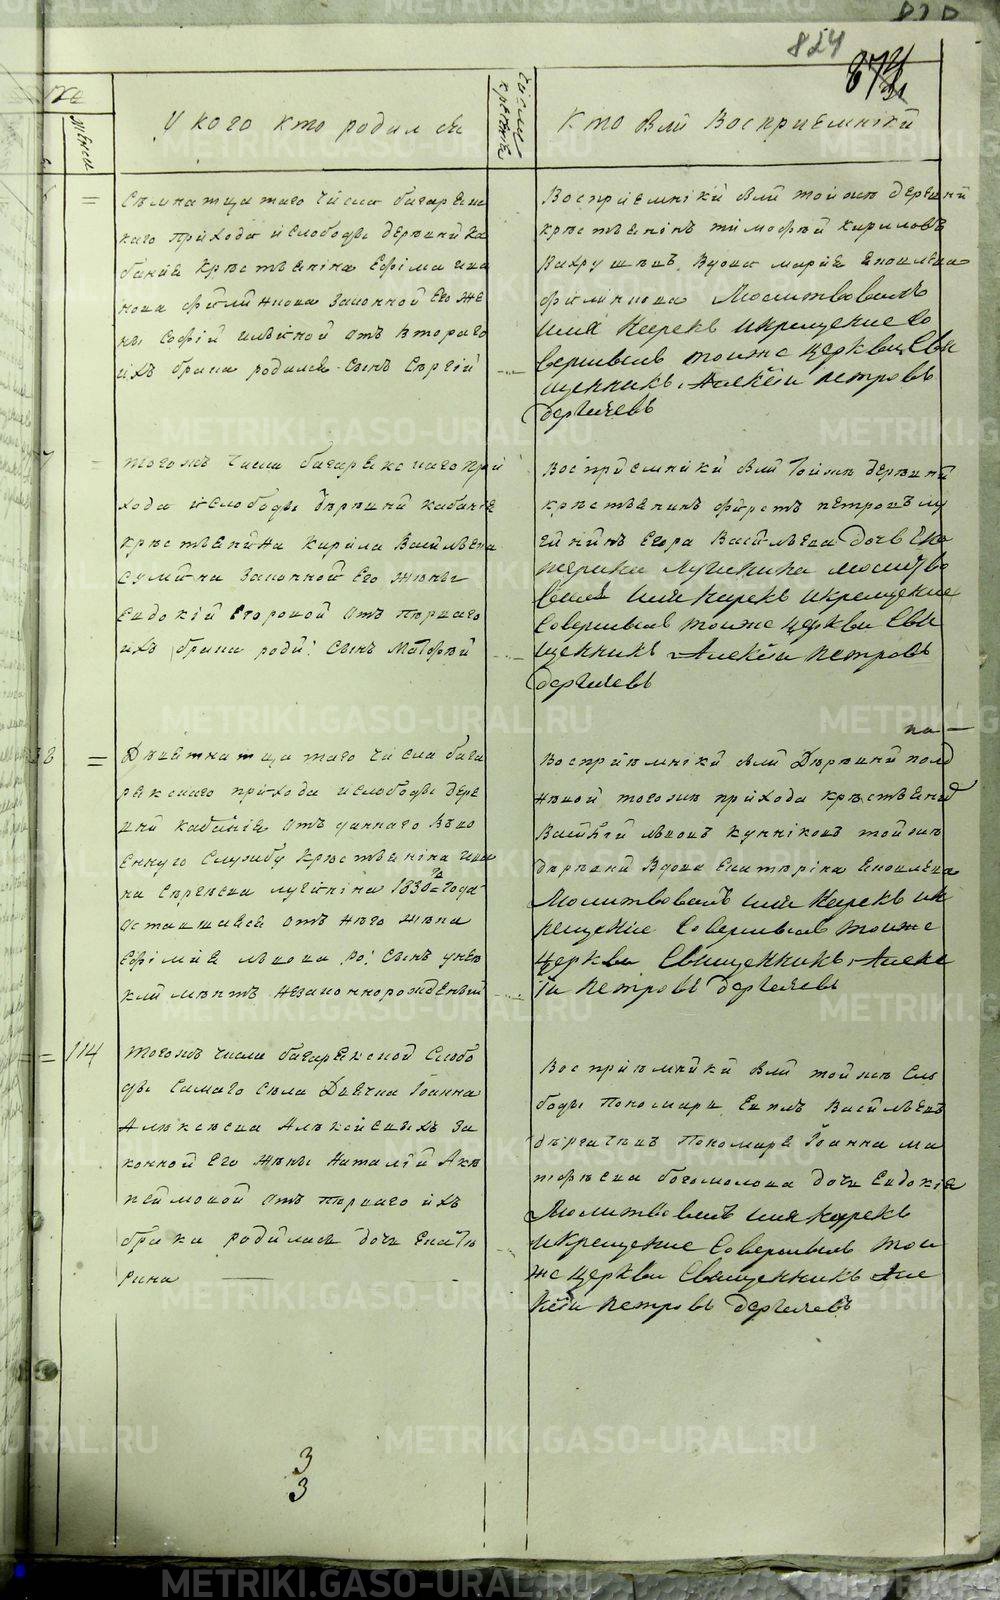 824
У кого кто родился
Числа крещения
Кто Были Восприемники
жена
Семнатцатаго числа багаряц
каго прихода и слободы деревни Ка
банье Крестьянина Ефима Ива
нова Филипова законной Его же
ны Софии Ильиной отъ втораго
ихъ брака родился сынъ Сергий
Восприемники были той же деревни
крестьянинъ тимофей кириловъ
Вахрушевъ, Вдова мария Яковлева
филипова Молитвовалъ
имя Нарекъ и крещение со
вершилъ тоиже церкви Свя
щенникъ Алексеи петровъ
Дергачевъ
того жъ числа багарякскаго при
хода и слободы деревни кабанье
крестьянина Кирила Васильева
законной Его жены
Евдокии Егоровой отъ перваго
ихъ брака роди: сынъ Матфей
Восприемники были тойже деревни
крестьянинъ петровъ лу
гининъ Егора Васильева дочь Ека
терина Лугинина молитво
валъ имя нарекъ и крещение
совершилъ тоиже церкви Свя
щенникъ Алексеи петровъ
Дергачевъ
38
Девятнатцатаго числа бага
рякскаго прихода и слободы дере
вни кабанье отъ даннаго въ во
енную службу крестьянина Ива
на Сергеева лугинина 1830 года
оставшаяся отъ него жена
Ефимия львова ро: сынъ
климентъ незаконнорожденый
Восприемники были Деревни полд
невой того жъ прихода крестьянинъ
Василий львовъ кунниковъ той жъ
деревни Вдова Екатерина Яковлева
Молитвовалъ имя Нарекъ и к
рещение совершилъ тоиже
церкви Священникъ Алексе
и петровъ Дергачевъ
114
того жъ числа багарякской слобо
ды самаго села Дьячка Иоанна
Алексеева Алексеевыхъ за
конной Его жены Наталии Аки
пеимовой отъ перваго ихъ
брака родилась дочь Екате
рина
Восприемники были той же сло
боды пономарь Васильевъ
дергачевъ Пономаря Иоанна ма
тфеева богомолова дочь Евдокия
Молитвовалъ имя нарекъ
и крещение совершилъ тои
же церкви Священникъ Але
ксеи петровъ Дергачевъ
3
3
METRIKI.GASO-URAL.RU